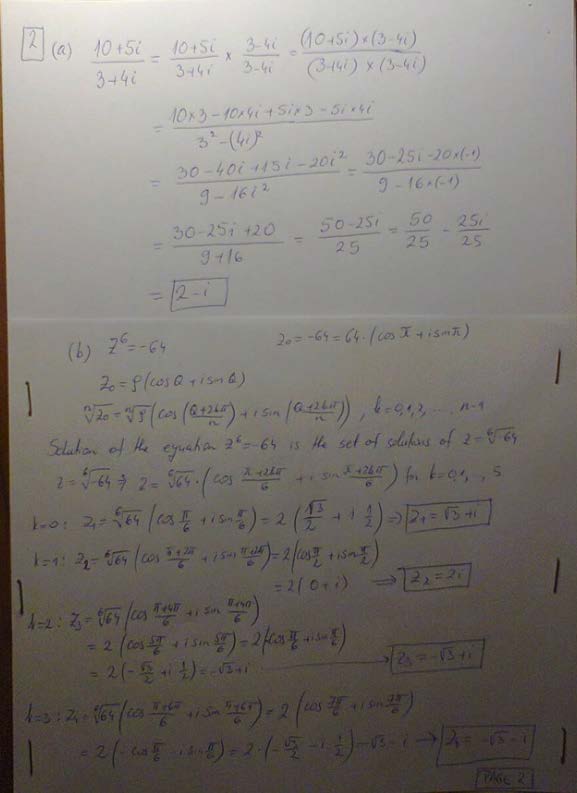 2 (a) (10+5i)/(3+4i) = (10+5i)/(3+4i) × (3-4i)/(3-4i) = ((10+5i)×(3-4i))/((3+4i)×(3-4i))
= (10×3-10×4i+5i×3-5i×4i)/(3²-(4i)²)
= (30-40i+15i-20i²)/(9-16i²) = (30-25i-20×(-1))/(9-16×(-1))
= (30-25i+20)/(9+16) = (50-25i)/25 = 50/25 - 25i/25
= 2-i
(b) Z⁶=-64 Z₀=-64=64·(cosπ+isinπ)
Z₀=ρ(cosQ+isinQ)
ⁿ√Z₀=ⁿ√ρ(cos(Q+2kπ)/n)+isin(Q+2kπ)/n)), k=0,1,2,..., n-1
Solution of the equation Z⁶=-64 is the set of solutions of Z=⁶√-64
Z=⁶√-64 ⇒ Z=⁶√64·(cos (π+2kπ)/6 + i sin (π+2kπ)/6) for k=0,1,..,5
k=0: Z₁=⁶√64(cos π/6+isin π/6)=2(√3/2+i 1/2) ⇒ Z₁=√3+i
k=1: Z₂=⁶√64(cos (π+2π)/6+isin (π+2π)/6)=2(cos π/2+isin π/2)
=2(0+i) ⇒ Z₂=2i
k=2: Z₃=⁶√64(cos (π+4π)/6+isin (π+4π)/6)
=2(cos 5π/6+isin 5π/6)=2(-cos π/6+isin π/6)
=2(-√3/2+i 1/2)=-√3+i → Z₃=-√3+i
k=3: Z₄=⁶√64(cos (π+6π)/6+isin (π+6π)/6)=2(cos 7π/6+isin 7π/6)
=2(-cos π/6-isin π/6)=2·(-√3/2-i·1/2)=-√3-i → Z₄=-√3-i
PAGE 2